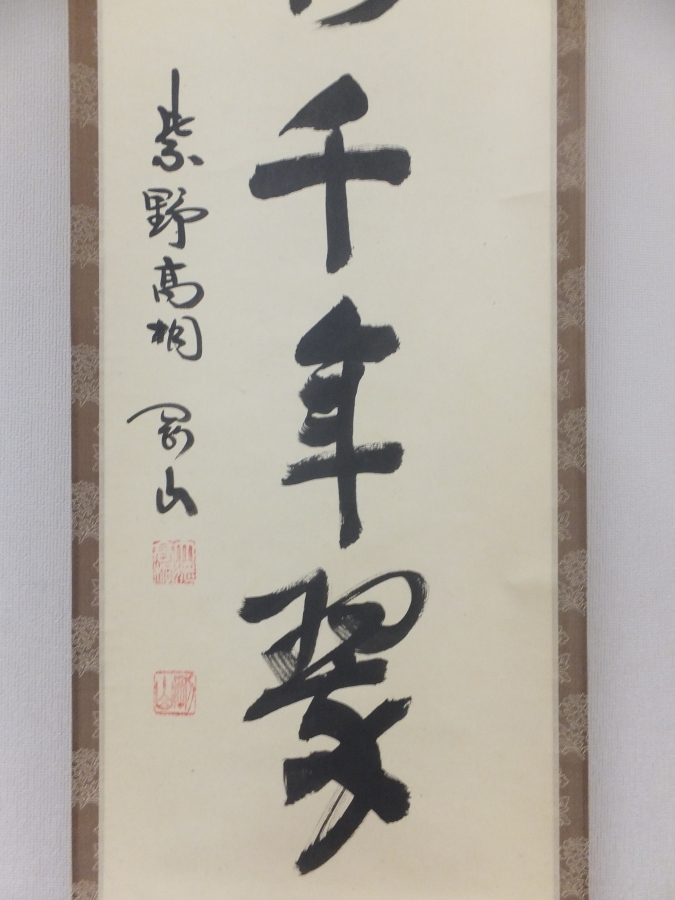 千年翠
紫野高桐 剛山